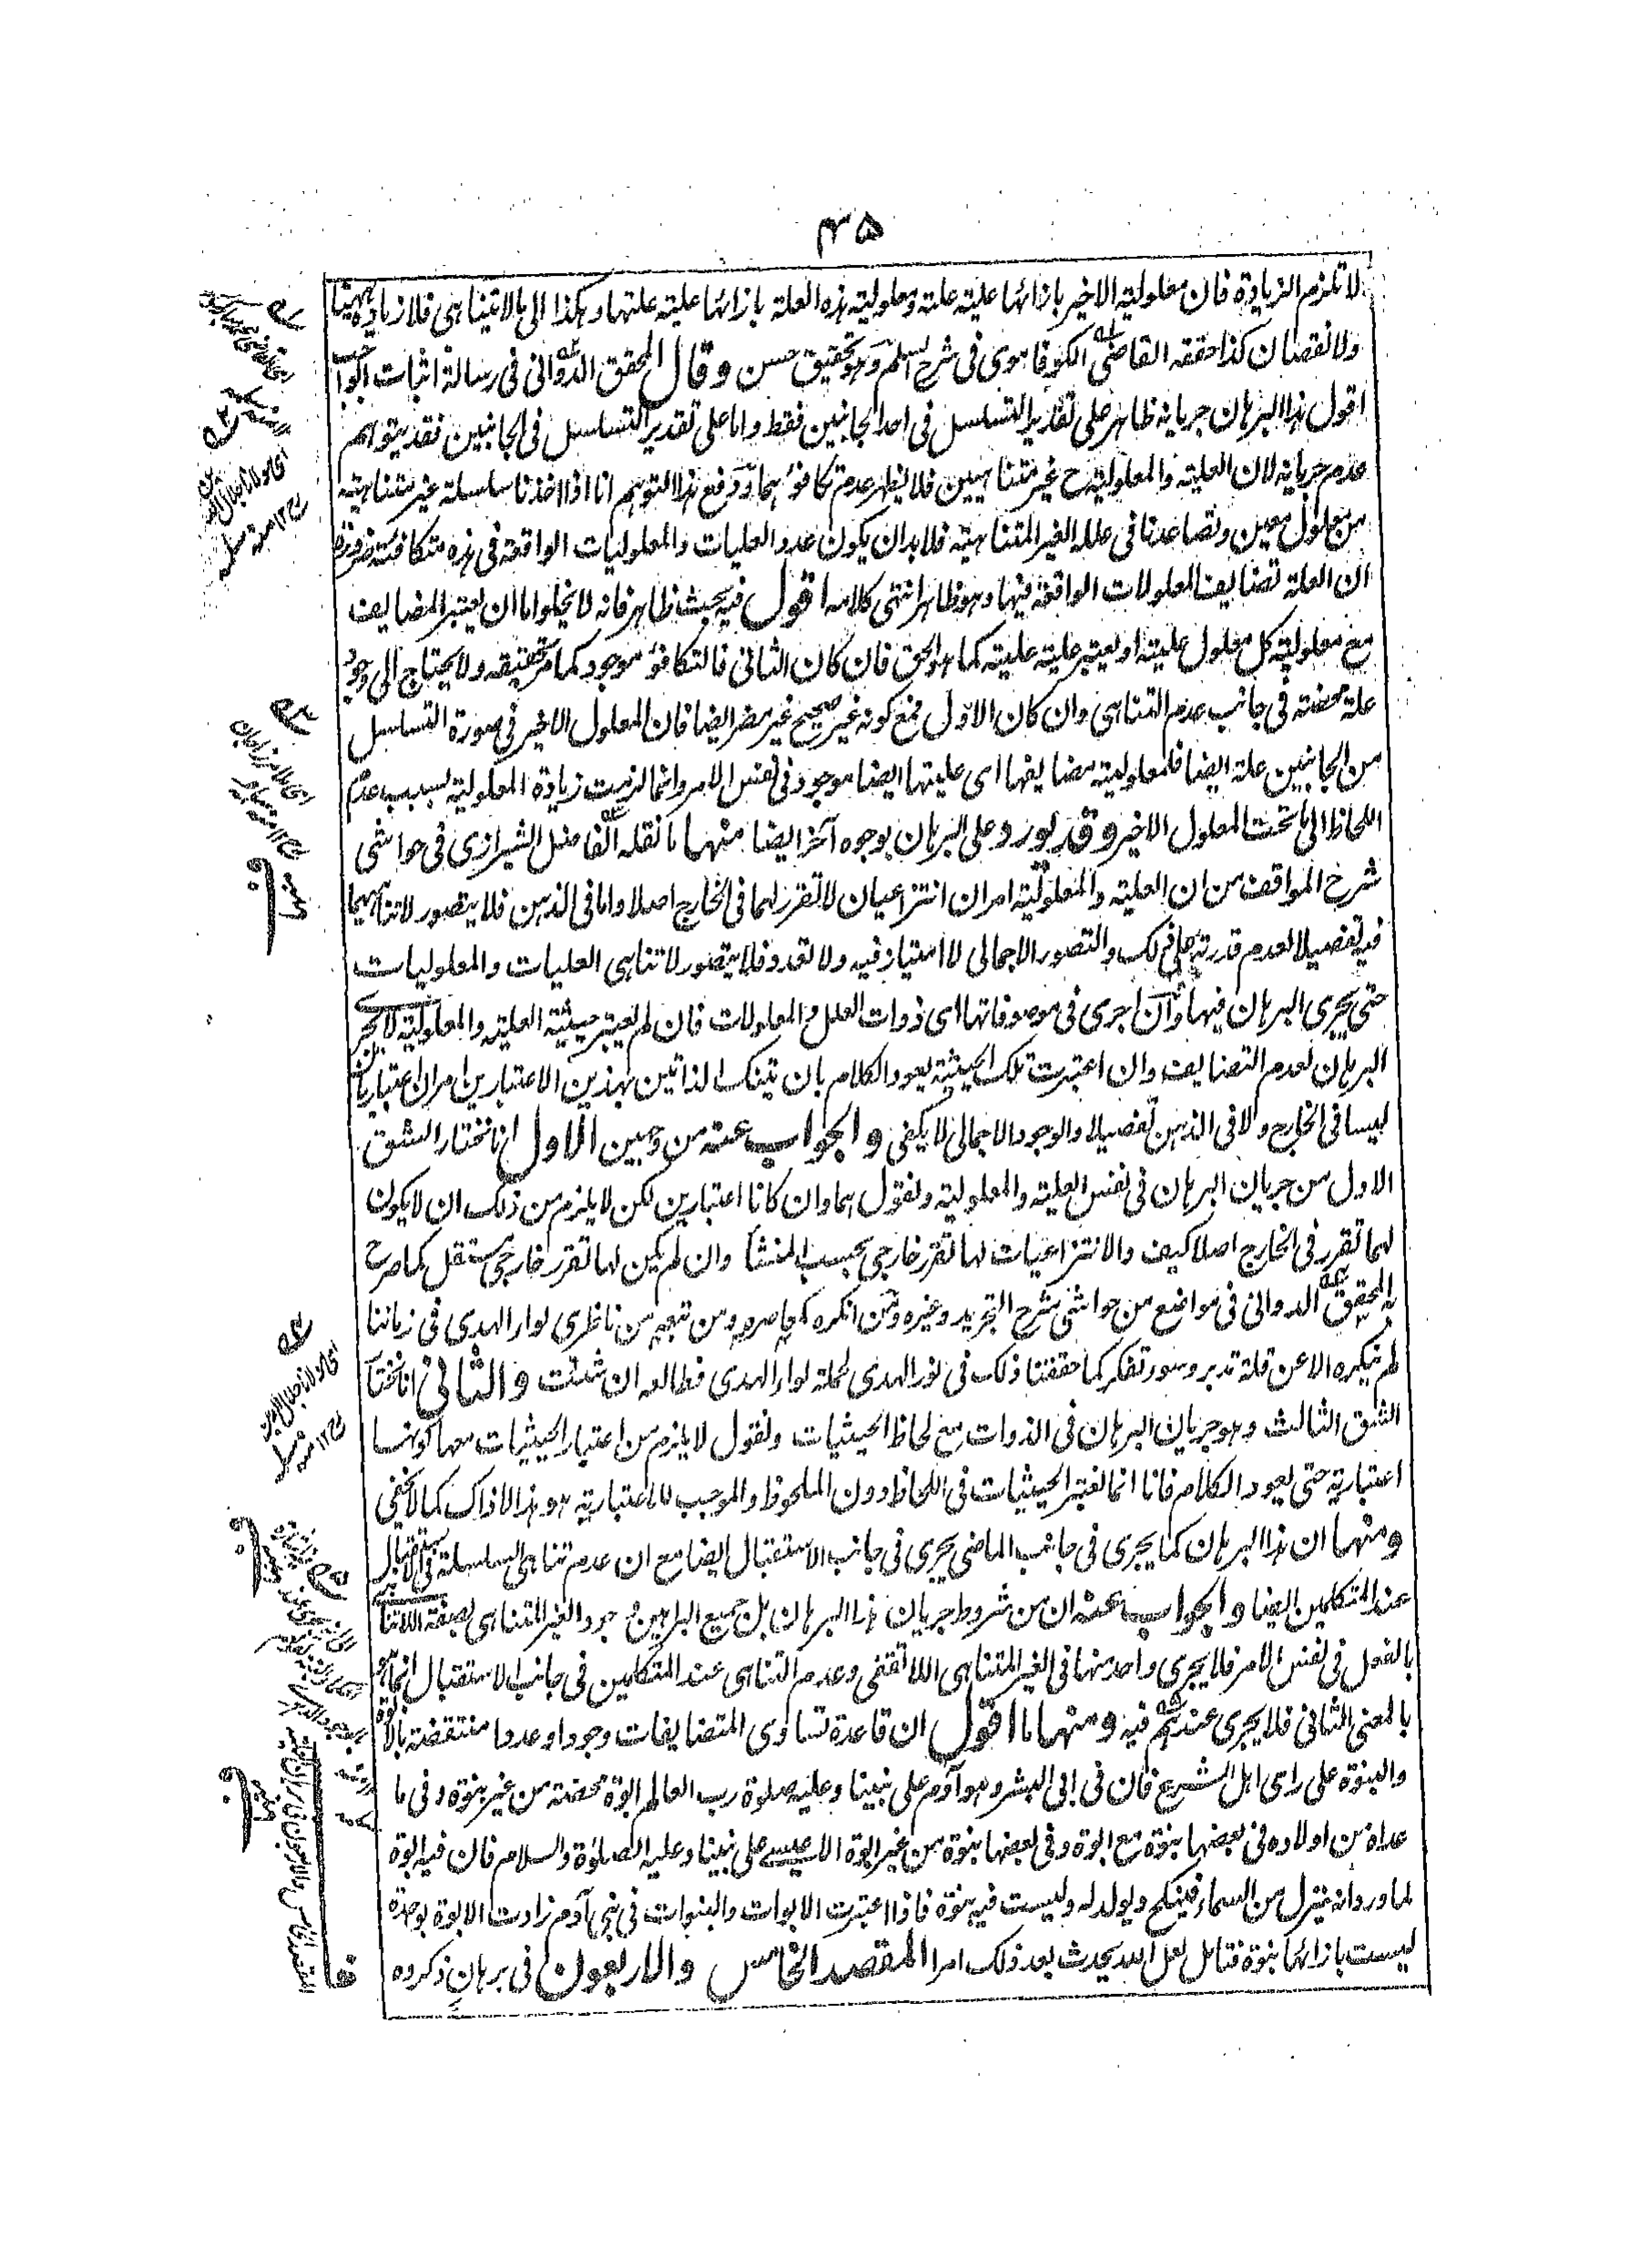 ۴۵
لا تلزم الزيادة فان معلولية الاخير بازائها علية علته ومعلولية هذه العلة بازائها علية علتها وهكذا الى بالا يتناهى فلا زيادة ههنا
ولا نقصان كذا حققه القاضى الكوفاموى فى شرح السلم وهو تحقيق حسن وقال المحقق الدوانى فى رسالة اثبات الواجب
اقول هذا البرهان جريانه ظاهر على تقدير التسلسل فى احد الجانبين فقط واما على تقدير التسلسل فى الجانبين فقد يتوهم
عدم جريانه لان العلية والمعلولية ح غير متناهيين فلا يظهر عدم تكافؤهما ودفع هذا التوهم انا اذا اخذنا سلسلة غير متناهية
من معلول معين وتصاعدنا فى علله الغير المتناهية فلا بد ان يكون عدد العليات والمعلوليات الواقعة فى هذه متكافئة ضرورة
ان العلة تضايف المعلولات الواقعة فيها وهو ظاهر انتهى كلامه اقول فيه بحث ظاهر فانه لا يخلو اما ان يعتبر المضايف
مع معلولية كل معلول علية او يعتبر علية علية كما هو الحق فان كان الثانى فالتكافؤ موجود كما مر تحقيقه ولا يحتاج الى وجود
علة محضة فى جانب عدم التناهى وان كان الاول فمع كونه غير صحيح غير مضر ايضا فان المعلول الاخير فى صورة التسلسل
من الجانبين علة ايضا فلمعلولية مضايفها اى عليتها ايضا موجود فى نفس الامر وانما لزمت زيادة المعلولية بسبب عدم
اللحاظ الى ما تحت المعلول الاخير وقد يورد على البرهان بوجوه آخر ايضا منها ما نقله الفاضل الشيرازى فى حواشى
شرح المواقف من ان العلية والمعلولية امران انتزاعيان لا تقرر لهما فى الخارج اصلا واما فى الذهن فلا يتصور لا تناهيهما
فيه تفصيلا لعدم قدرته على ذلك والتصور الاجمالى لا امتياز فيه ولا تعدد فلا يتصور لا تناهى العليات والمعلوليات
حتى يجرى البرهان فيها وان اجرى فى موصوفاتها اى ذوات العلل والمعلولات فان لم يعتبر حيثية العلية والمعلولية لا يجرى
البرهان لعدم التضايف وان اعتبرت تلك الحيثية يعود الكلام بان تينك الذاتين بهذين الاعتبارين امران اعتباريان
ليسا فى الخارج ولا فى الذهن تفصيلا والوجود الاجمالى لا يكفى والجواب عنه من وجهين الاول انا نختار الشق
الاول من جريان البرهان فى نفس العلية والمعلولية ونقول هما وان كانا اعتبارين لكن لا يلزم من ذلك ان لا يكون
لهما تقرر فى الخارج اصلا كيف والانتزاعيات لها تقرر خارجى بحسب المنشأ وان لم يكن لها تقرر خارجى مستقل كما صرح
به المحقق الدوانى فى مواضع من حواشى شرح التجريد وغيره ومن انكره كمعاصره ومن تبعه من ناظرى لواء الهدى فى زماننا
لم ينكره الا عن قلة تدبر وسوء تفكر كما حققنا ذلك فى نور الهدى لحملة لواء الهدى فطالعه ان شئت والثانى انا نختار
الشق الثالث وهو جريان البرهان فى الذوات مع لحاظ الحيثيات ونقول لا يلزم من اعتبار الحيثيات معها كونها
اعتبارية حتى يعود الكلام فانا انما نعتبر الحيثيات فى اللحاظ دون الملحوظ والموجب للاعتبارية هو هذا لا ذاك كما لا يخفى
ومنها ان هذا البرهان كما يجرى فى جانب الماضى يجرى فى جانب الاستقبال ايضا مع ان عدم تناهى السلسلة فى الاستقبال
عند المتكلمين ايضا والجواب عنه ان من شروط جريان هذا البرهان بل جميع البراهين وجود الغير المتناهى بصفة اللاتناهى
بالفعل فى نفس الامر فلا يجرى واحد منها فى الغير المتناهى اللا تقفى وعدم التناهى عند المتكلمين فى جانب الاستقبال انما هو
بالمعنى الثانى فلا يجرى عندهم فيه ومنها ما اقول ان قاعدة تساوى المتضايفات وجودا وعددا منتقضة بالابوة
والبنوة على راى اهل الشرع فان فى ابى البشر وهو آدم على نبينا وعليه صلوة رب العالم ابوة محضة من غير بنوة وفى ما
عداه من اولاده فى بعضها بنوة مع ابوة وفى بعضها بنوة من غير ابوة الا عيسى على نبينا وعليه الصلوة والسلام فان فيه ابوة
لما ورد انه ينزل من السماء فينكح ويولد له وليست فيه بنوة فاذا اعتبرت الابوات والبنوات فى بنى آدم زادت الابوة بوحدة
ليست بازائها بنوة فتامل لعل الله يحدث بعد ذلك امرا المقصد الخامس والاربعون فى برهان ذكروه